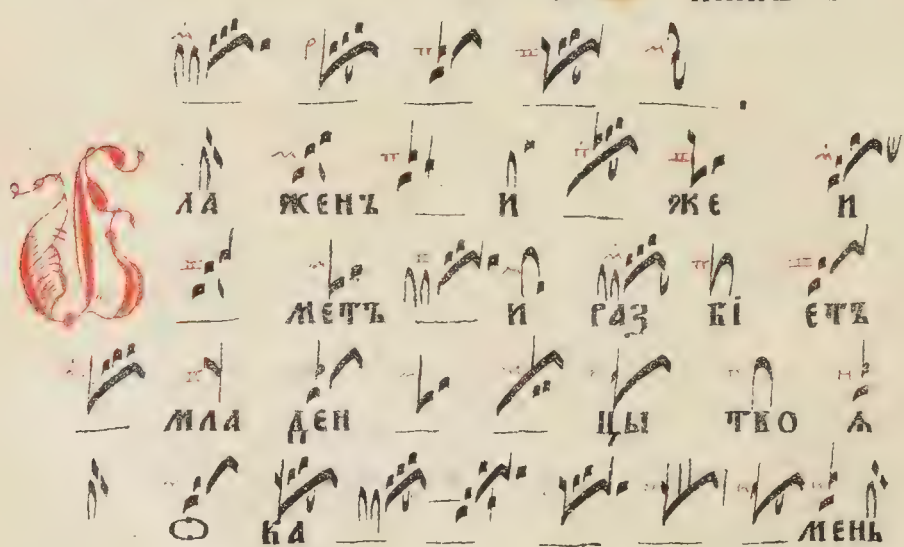 БЛА ЖЕНЪ И ЖЕ И
МЕТЪ И РАЗ БІ ЕТЪ
МЛА ДЕН ЦЫ ТВО Ѧ
О КА МЕНЬ